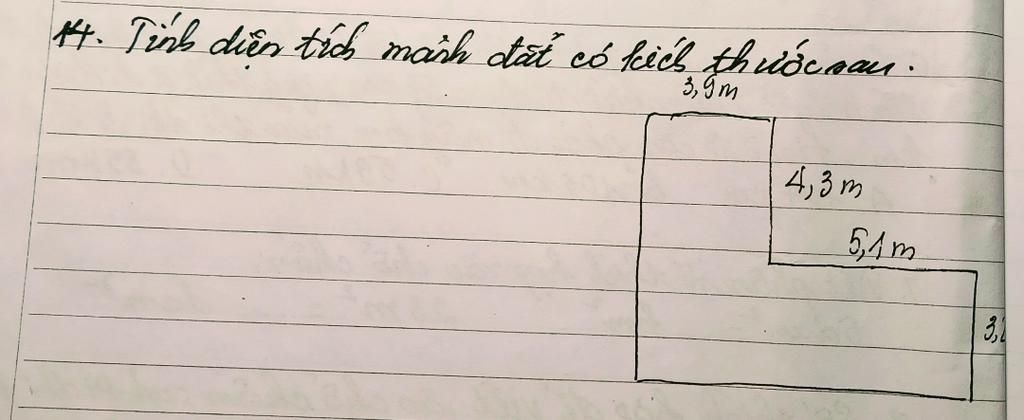 14. Tính diện tích mảnh đất có kích thước sau.
3,9m
4,3m
5,1m